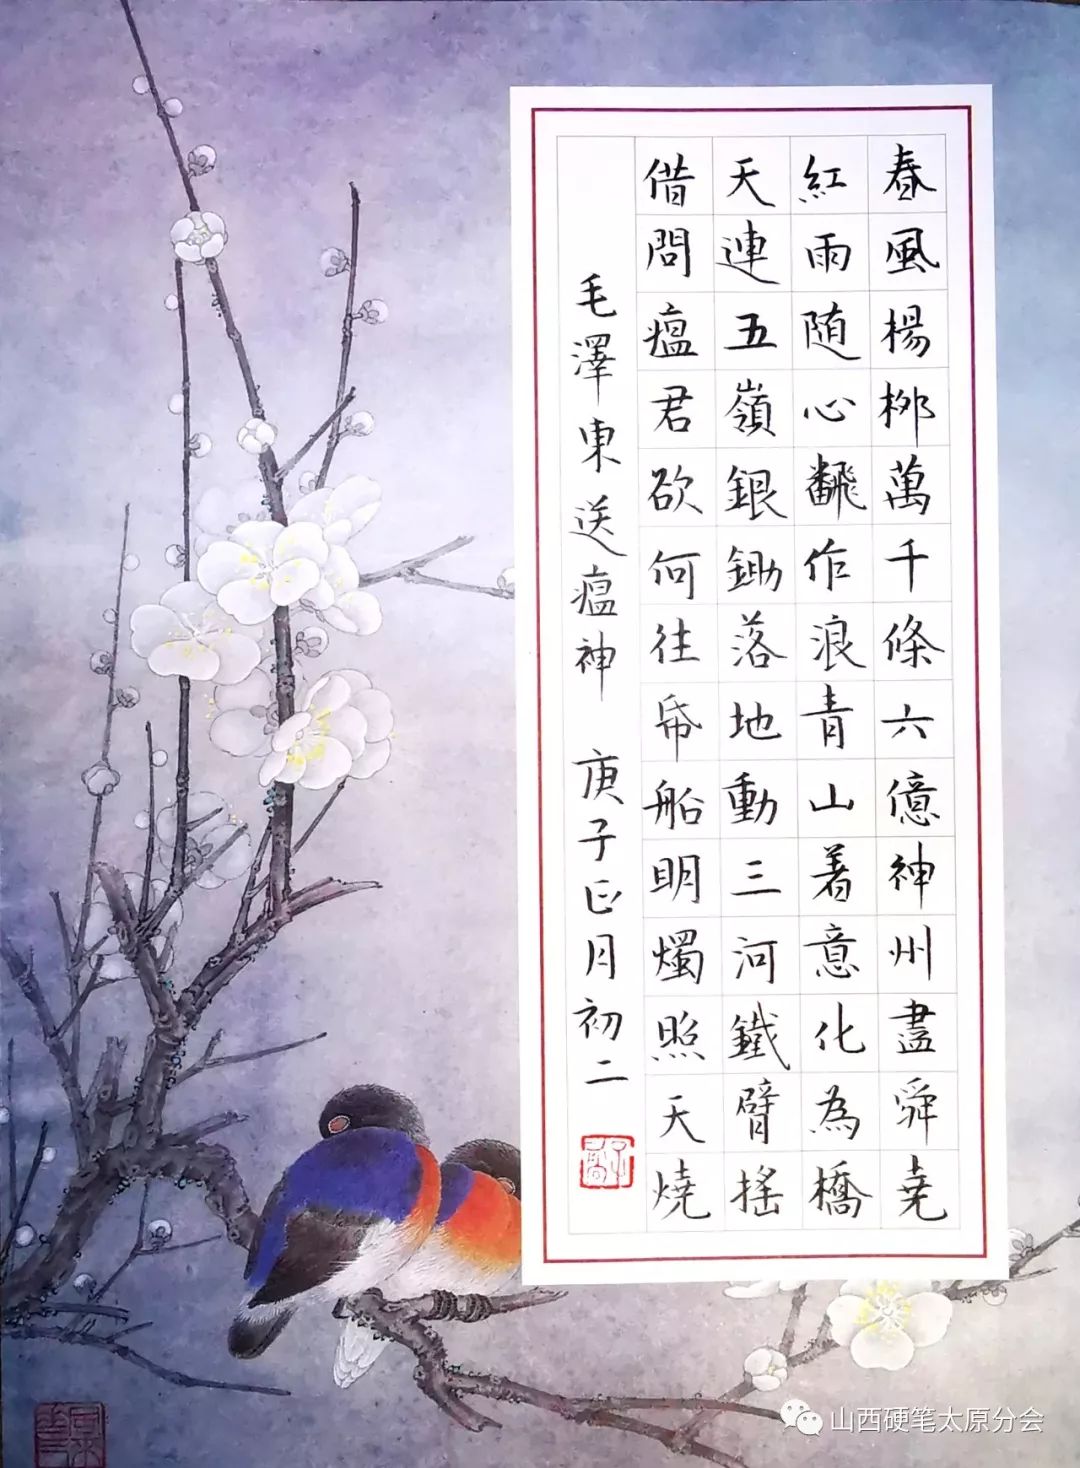 春風楊柳萬千條六億神州盡舜堯
紅雨随心飜作浪青山着意化為橋
天連五嶺銀鋤落地動三河鐵臂搖
借問瘟君欲何往帋船明燭照天燒
毛澤東送瘟神 庚子正月初二
山西硬笔太原分会